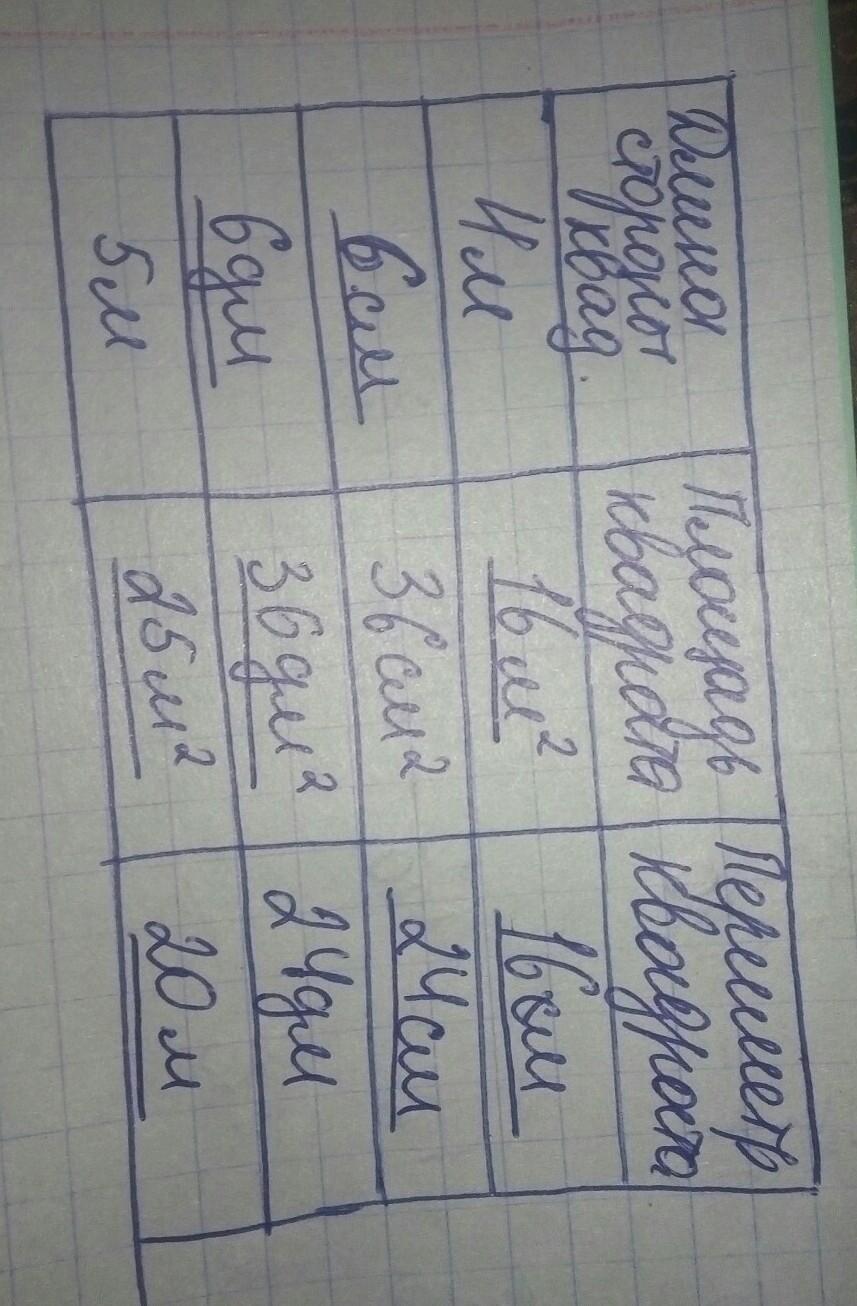 Длина стороны квад. Площадь квадрата Периметр квадрата
4м 16м² 16см
6см 36см² 24см
6дм 36дм² 24дм
5м 25м² 20м